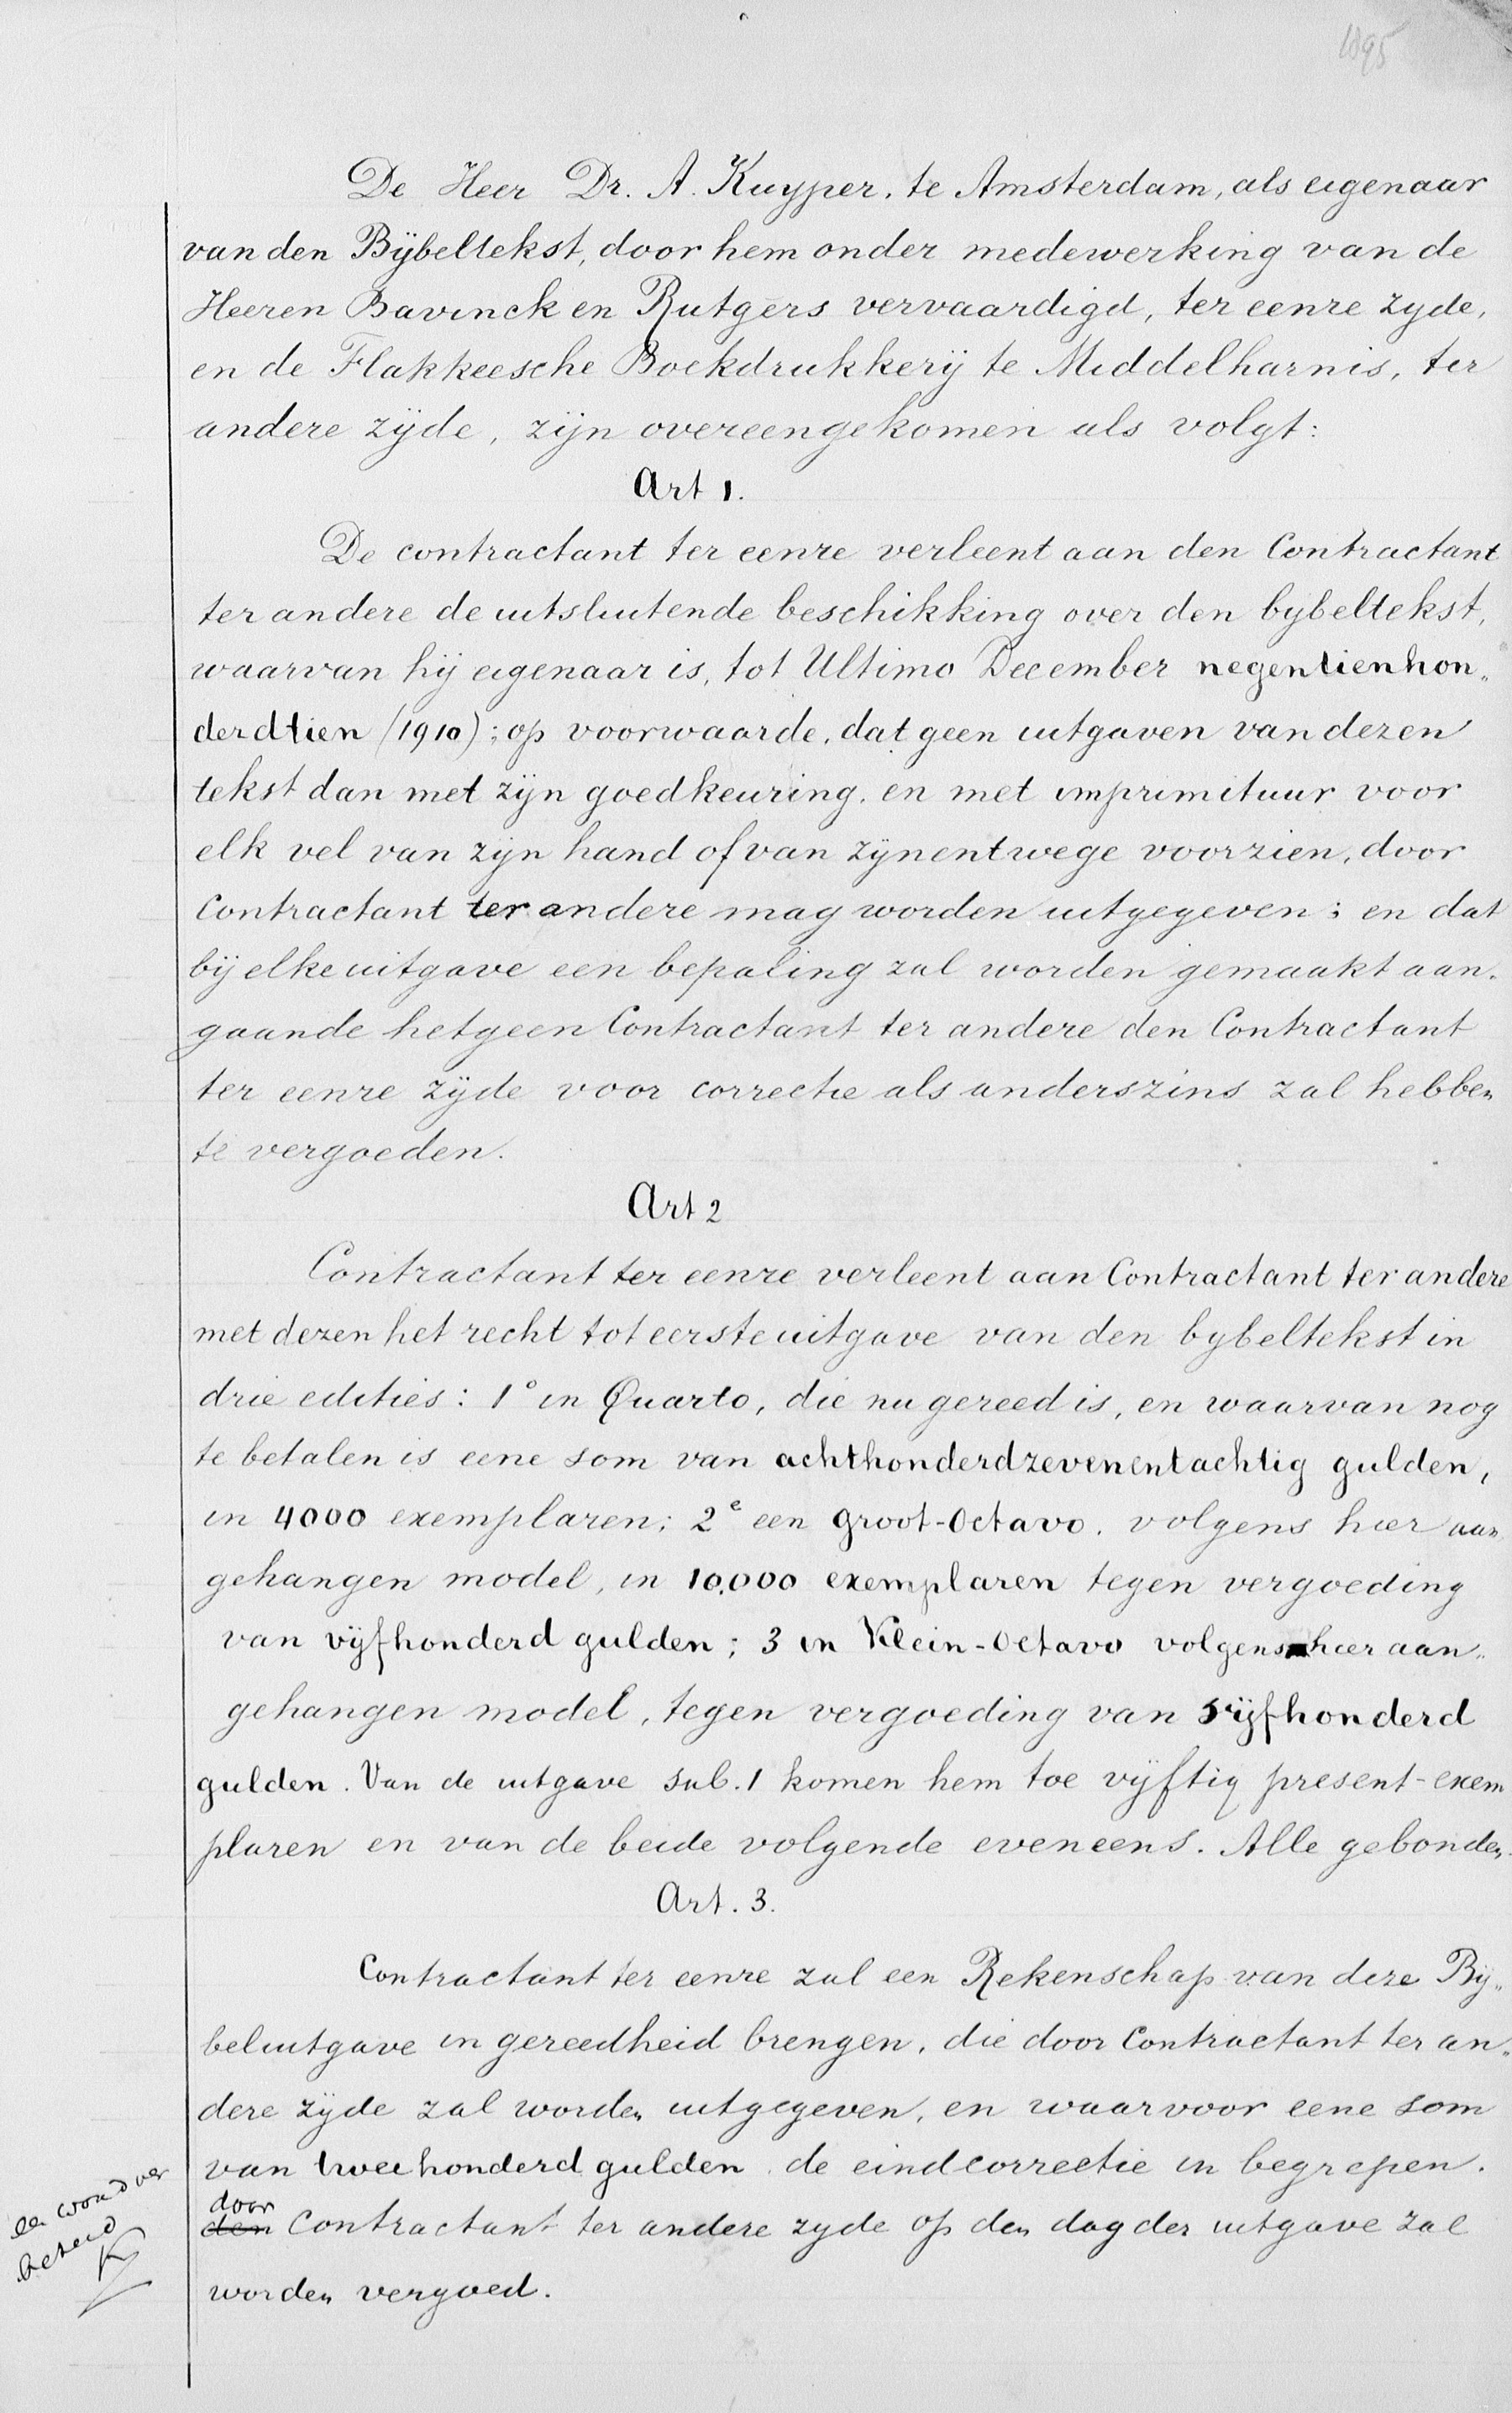 1895
De Heer Dr. A. Kuyper, te Amsterdam, als eigenaar
van den Bijbeltekst, door hem onder medewerking van de
Heeren Bavinck en Rutgers vervaardigd, ter eenre zyde,
en de Flakkeesche Boekdrukkerij te Middelharnis, ter
andere zijde, zijn overeengekomen als volgt:
Art 1.
De contractant ter eenre verleent aan den Contractant
ter andere de uitsluitende beschikking over den bybeltekst,
waarvan hij eigenaar is, tot Ultimo December negentienhon„
derdtien (1910); op voorwaarde, dat geen uitgaven van dezen
tekst dan met zijn goedkeuring, en met imprimituur voor
elk vel van zijn hand of van zijnentwege voorzien, door
Contractant ter andere mag worden uitgegeven; en dat
bij elke uitgave een bepaling zal worden gemaakt aan„
gaande hetgeen Contractant ter andere den Contractant
ter eenre zijde voor correctie als anderszins zal hebben
te vergoeden.
Art 2
Contractant ter eenre verleent aan Contractant ter andere
met dezen het recht tot eerste uitgave van den bybeltekst in
drie edities: 1° in Quarto, die nu gereed is, en waarvan nog
te betalen is eene som van achthonderdzevenentachtig gulden,
in 4000 exemplaren; 2e een groot-Octavo, volgens hier aan
gehangen model, in 10.000 exemplaren tegen vergoeding
van vijfhonderd gulden; 3 in Klein-Octavo volgens hier aan„
gehangen model, tegen vergoeding van vijfhonderd
gulden. Van de uitgave sub. 1 komen hem toe vijftig present-exem
plaren en van de beide volgende eveneens. Alle gebonden.
Art. 3.
Contractant ter eenre zal een Rekenschap van deze Bij„
beluitgave in gereedheid brengen, die door Contractant ter an„
dere zijde zal worden uitgegeven, en waarvoor eene som
van tweehonderd gulden de eindcorrectie in begrepen.
door
den Contractant ter andere zyde op den dag der uitgave zal
worden vergoed.
een woord ver
beterd
K